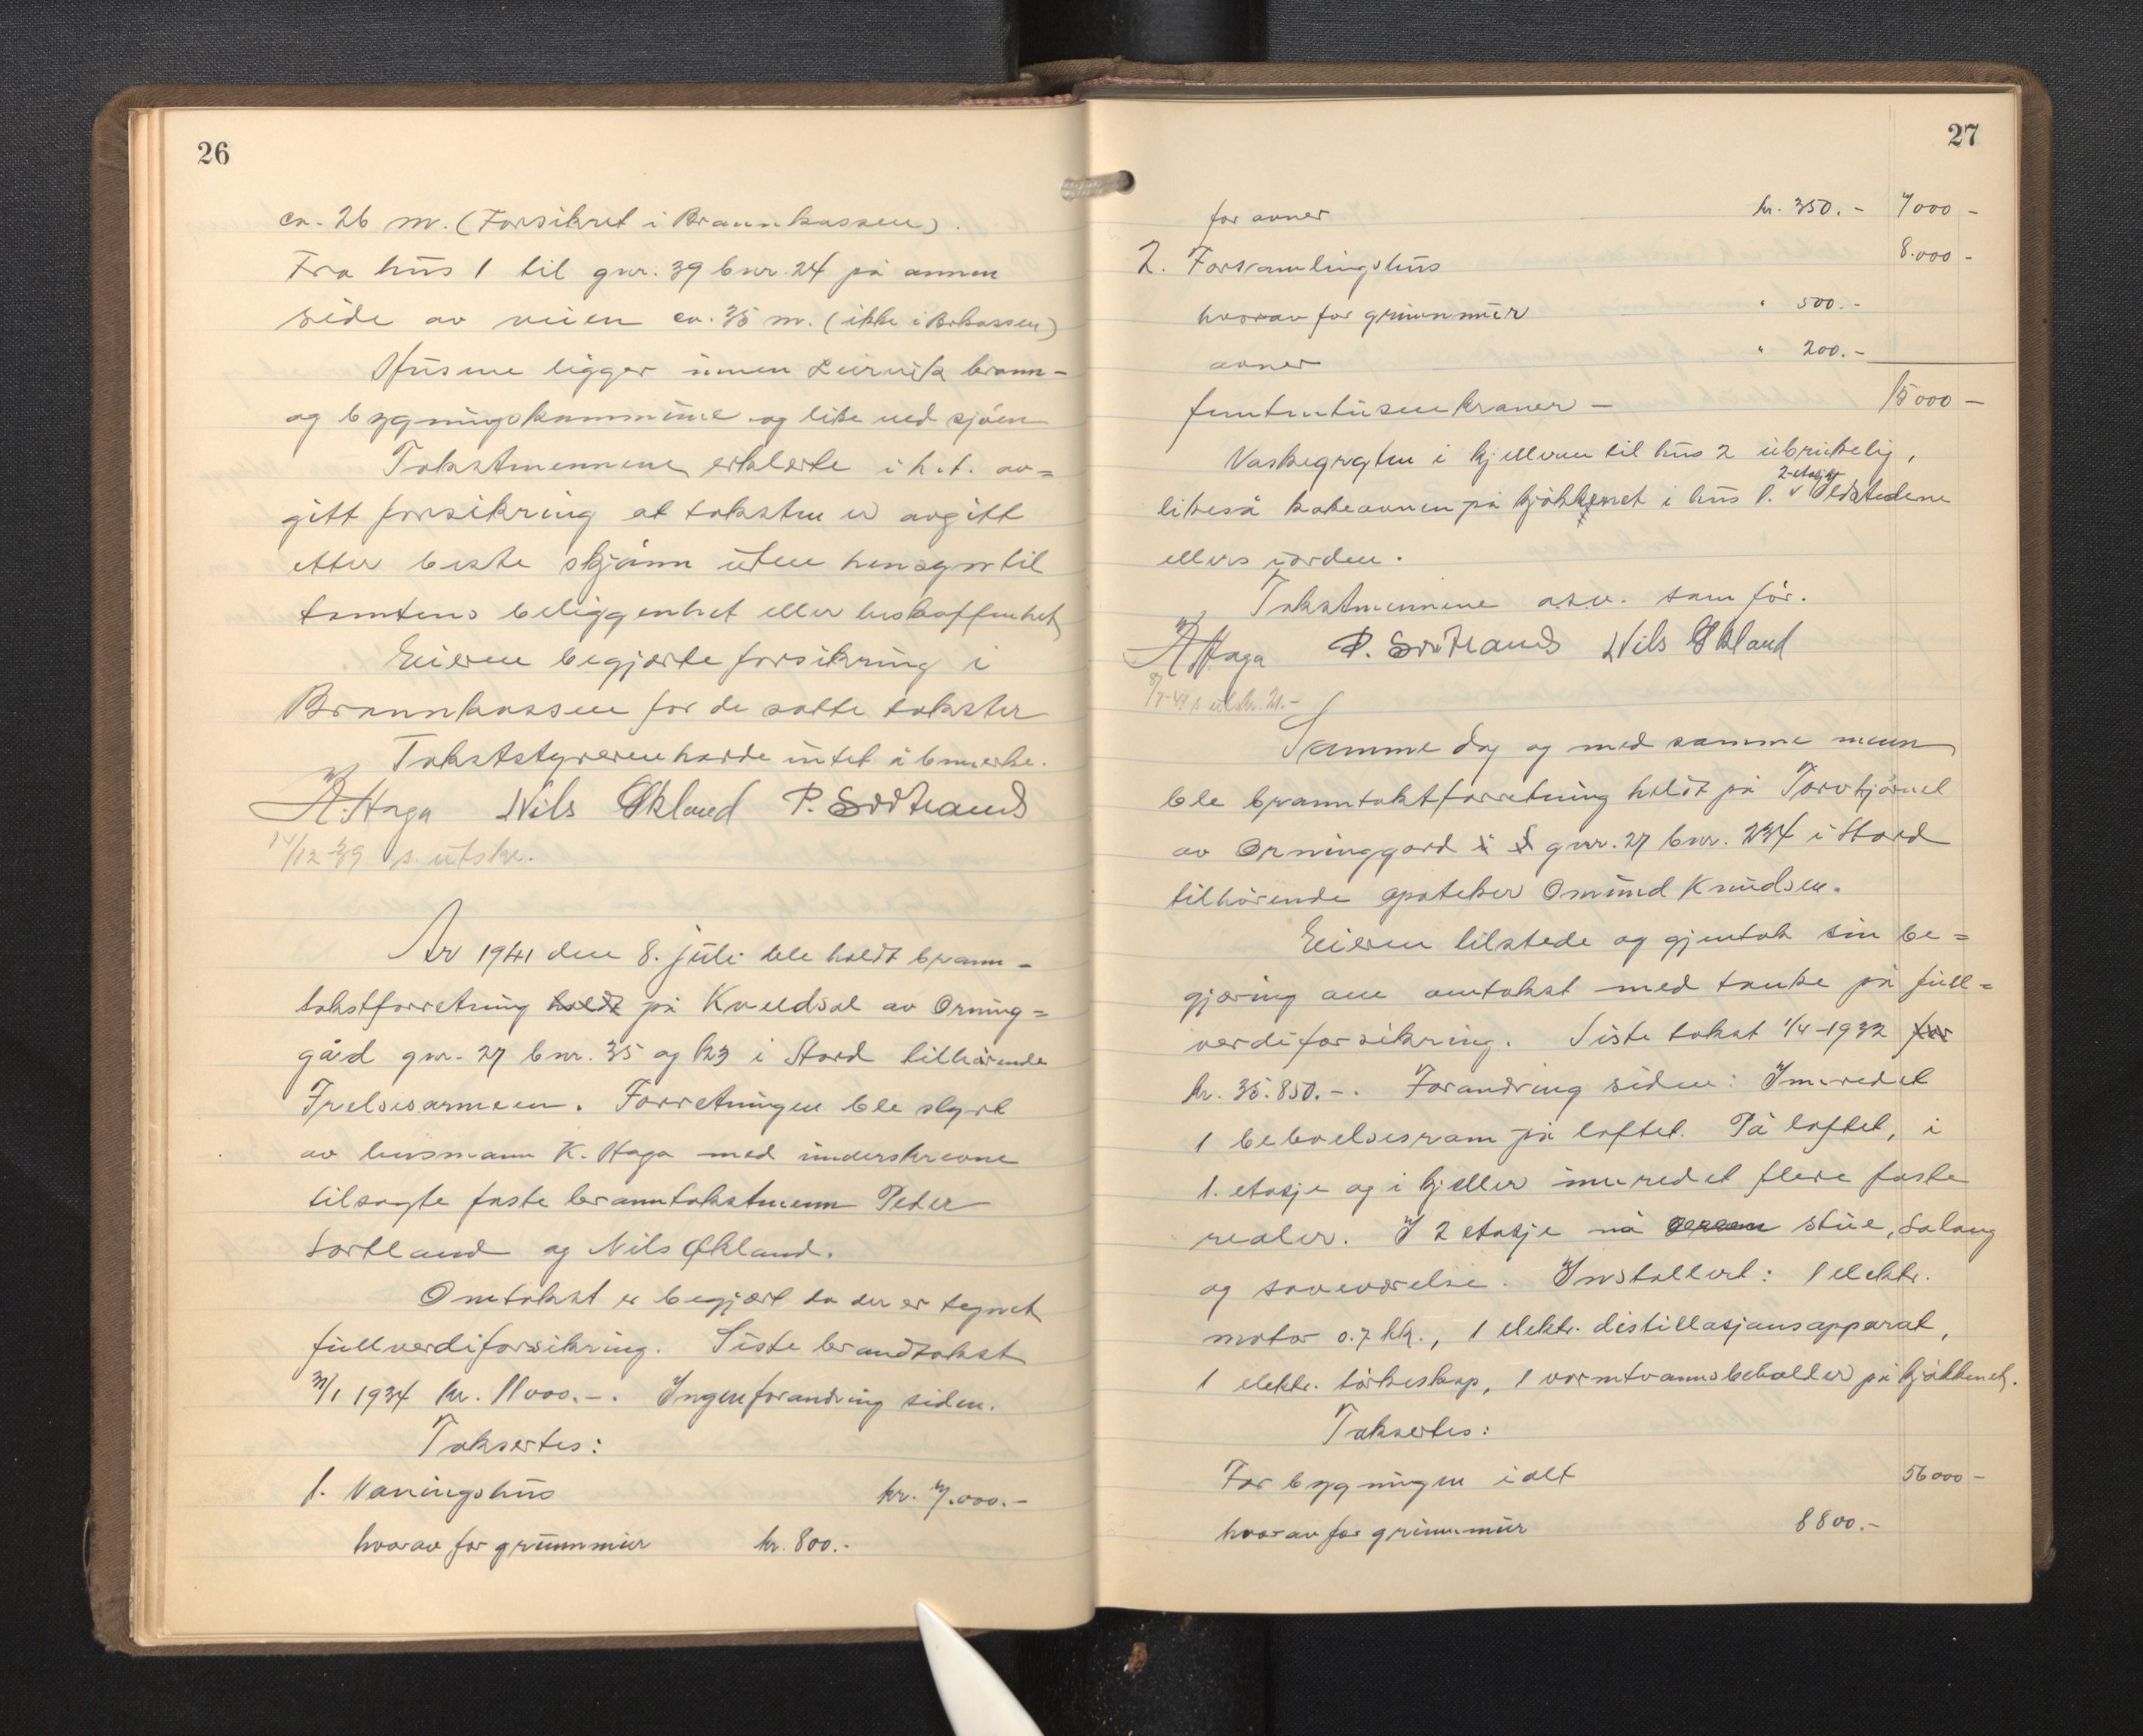 26
ca. 26 m. (Forsikret i Brannkassen).
Fra hus 1 til gnr. 39 bnr. 24 på annen
side av veien ca. 35 m. (ikke i Brkassen)
Husene ligger innen Leirvik brann-
og bygningskommune og like ved sjøen
Takstmennene erklærte i h.t. av=
gitt forsikring at taksten er avgitt
etter beste skjønn uten hensyn til
tomtens beliggenhet eller beskaffenhet
Eieren begjærte forsikring i
Brannkassen for de satte takster
Takststyreren hadde intet å bemerke.
K. Haga Nils Økland P. Sortland
14/12-39 s. utskr.
År 1941 den 8. juli ble holdt brann-
takstforretning holdt på Kveldsol av Orning=
gård gnr. 27 bnr. 35 og 123 i Stord tilhørende
Frelsesarmeen. Forretningen ble styrt
av lensmann K. Haga med underskrevne
tilsagte faste branntakstmenn Peder
Sortland og Nils Økland.
Omtakst er begjært da der er tegnet
fullverdiforsikring. Siste brandtakst
31/1 1934 kr. 11000.-. Ingen forandring siden.
Takseres:
1. Våningshus kr. 7.000.-
hvorav for grunnmur kr. 800.-
27
for ovner kr. 350.- 7000-
2. Forsamlingshus 8.000-
hvorav for grunnmur " 500.-
ovner " 200.-
femtentusenkroner - 15000-
Vaskegryten i kjelleren til hus 2 ubrukelig,
likeså kokeovnen på kjøkkenet i hus 1. 2 etasje Ildstedene
ellers i orden.
Takstmennene osv. som før.
K. Haga P. Sortland Nils Økland
8/7-41 s. utskr. 21.-
Samme dag og med samme menn
ble branntakstforretning holdt på Torvhjørnet
av Orninggård gnr. 27 bnr. 234 i Stord
tilhørende apoteker Omund Knudsen.
Eieren tilstede og gjentok sin be=
gjæring om omtakst med tanke på full=
verdiforsikring. Siste takst 1/4-1932 for
kr. 35.850.-. Forandring siden: Innredet
1 beboelsesrom på loftet. På loftet, i
1. etasje og i kjeller innredet flere faste
reoler. I 2 etasje nå stue, salong
og soveværelse. Installert: 1 elektr.
motor 0.7 hk., 1 elektr. distillasjonsapparat,
1 elektr. tørkeskap, 1 varmtvannsbeholder på kjøkkenet.
Takseres:
For bygningen i alt 56000-
hvorav for grunnmur 8800.-